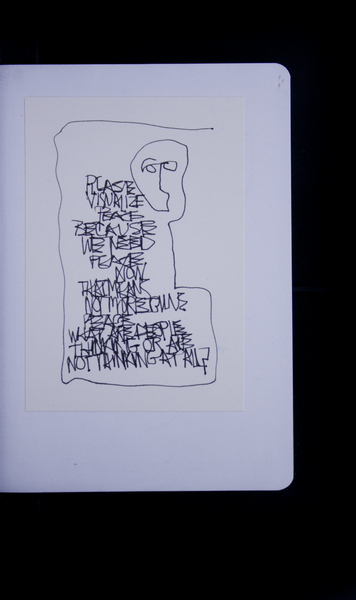 PLEASE
VISUALIZE
PEACE
BECAUSE
WE NEED
PEACE
NOW.
THAT MEANS
NOT MORE
PEACE
WHAT ARE PEOPLE
THINKING OR ARE
NOT THINKING AT ALL?